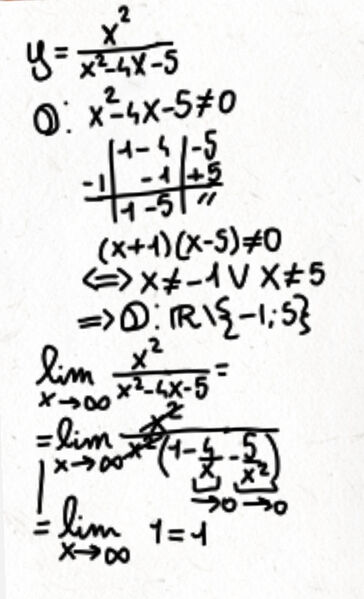 y = x²/(x²-4x-5)
D: x²-4x-5≠0
|1 -4|-5
-1| -1|+5
|1 -5| //
(x+1)(x-5)≠0
⟺ x≠-1 ∨ x≠5
⟹ D: ℝ\{-1;5}
lim x→∞ x²/(x²-4x-5) =
= lim x→∞ x²/(x²(1-4/x-5/x²))
→0 →0
= lim x→∞ 1=1